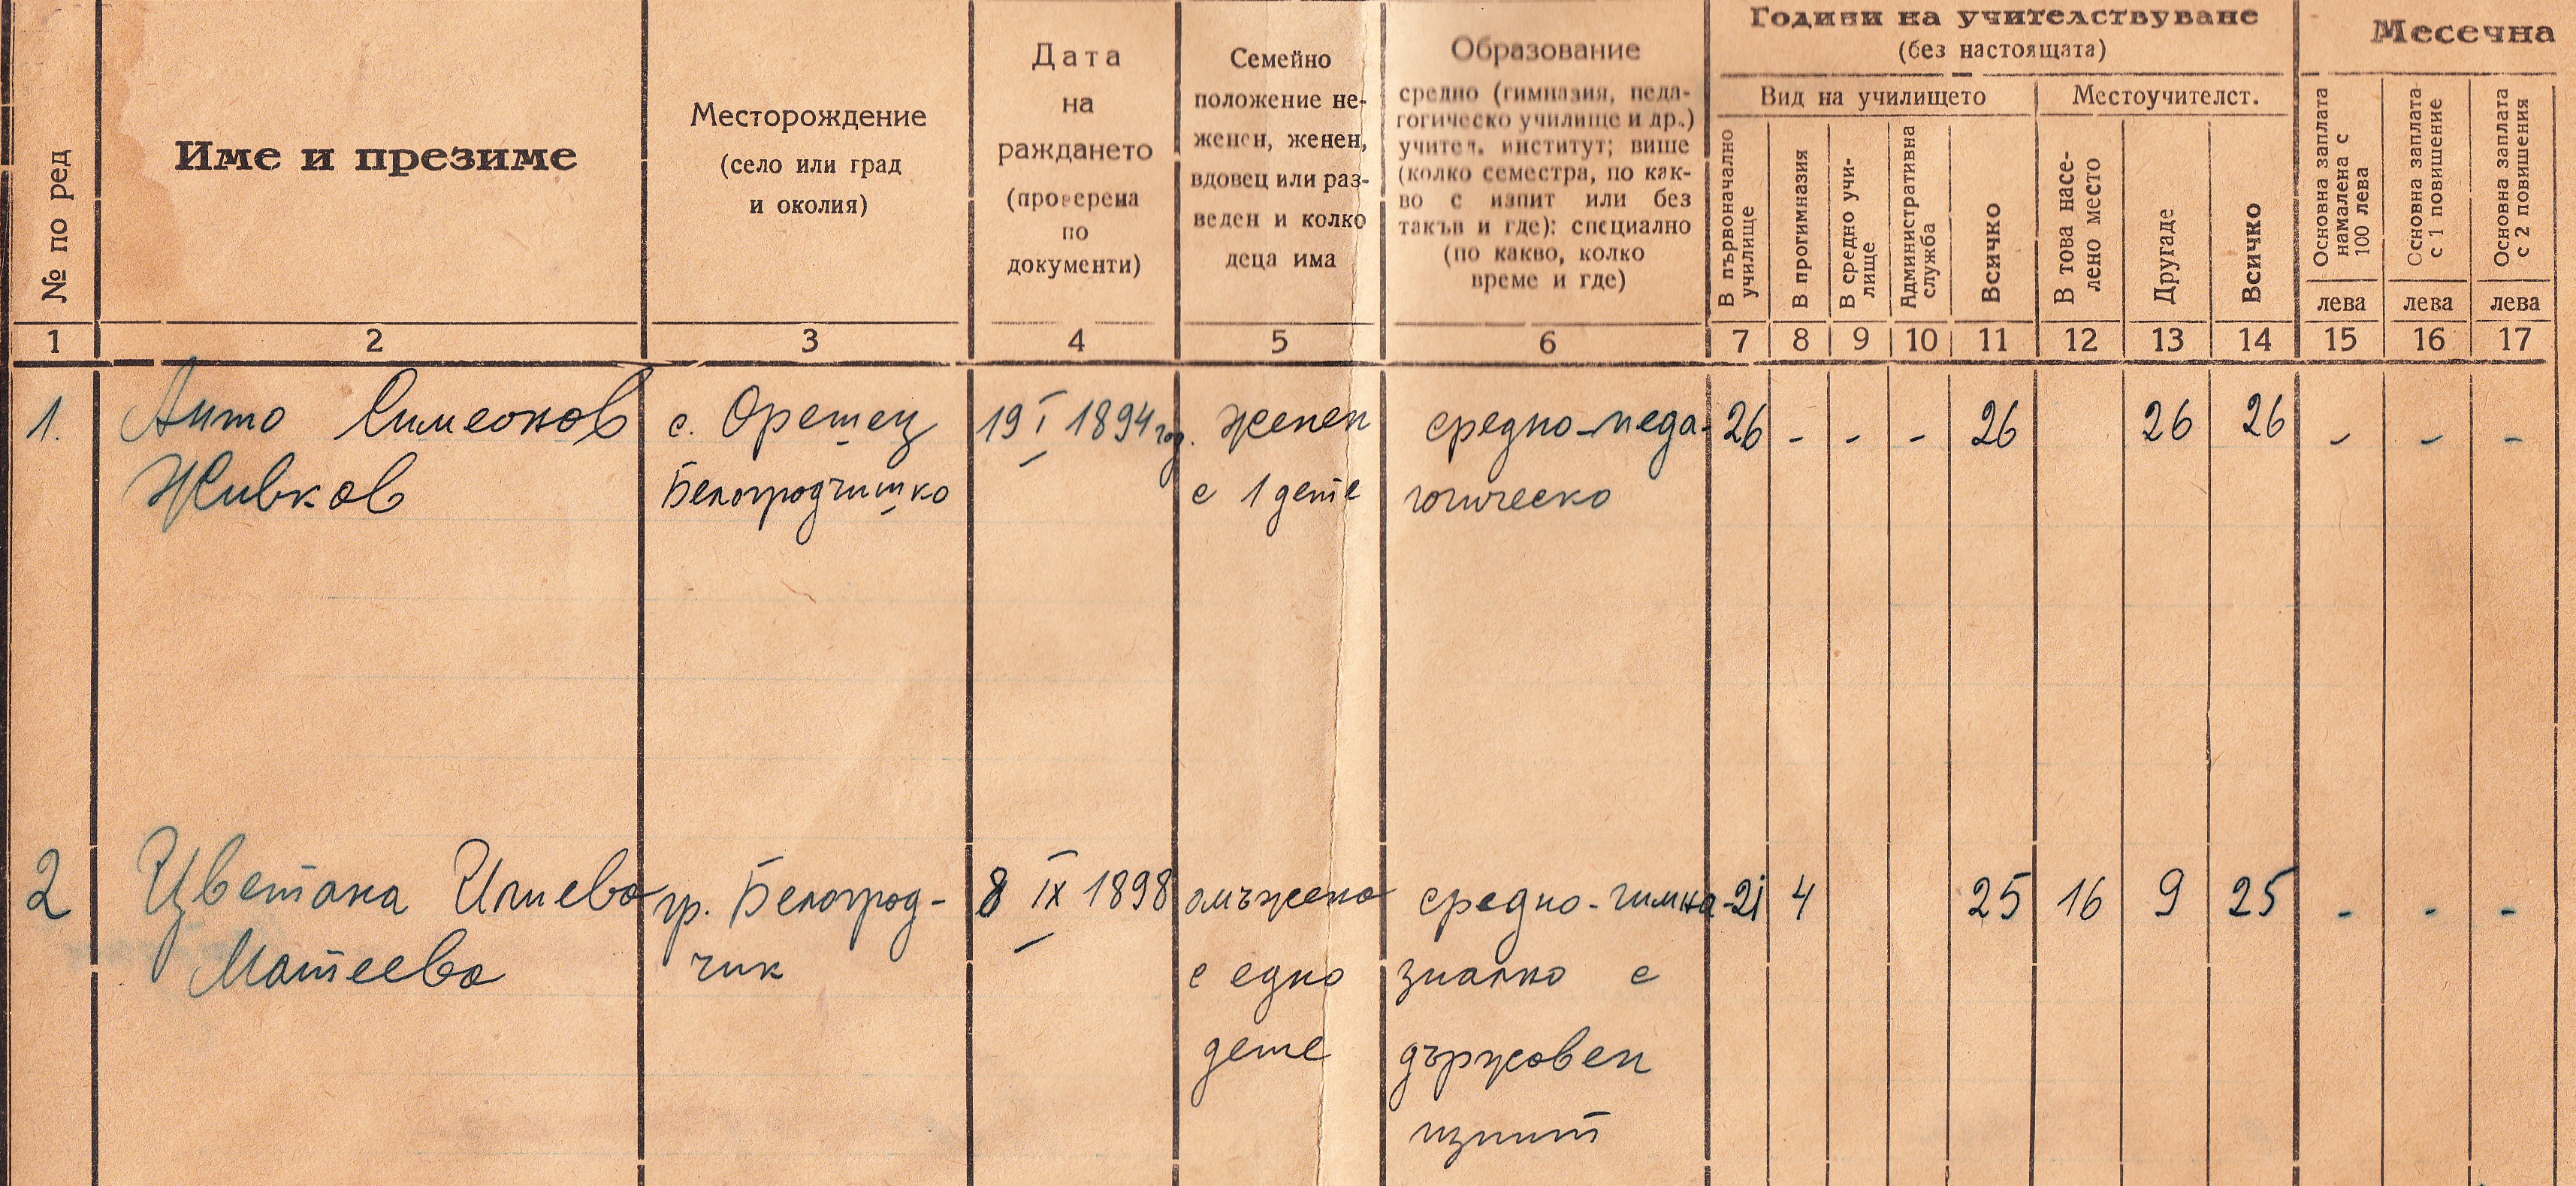 Години на учителствуване
(без настоящата)
Месечна
№ по ред
Име и презиме
Месторождение
(село или град
и околия)
Дата
на
раждането
(проверена
по
документи)
Семейно
положение не-
женен, женен,
вдовец или раз-
веден и колко
деца има
Образование
средно (гимназия, педа-
гогическо училище и др.)
учител. институт; више
(колко семестра, по как-
во с изпит или без
такъв и где): специално
(по какво, колко
време и где)
Вид на училището
Местоучителст.
В първоначално
училище
В прогимназия
В средно учи-
лище
Административна
служба
Всичко
В това насе-
лено место
Другаде
Всичко
Основна заплата
намалена с
100 лева
Основна заплата
с 1 повишение
Основна заплата
с 2 повишения
лева лева лева
1 2 3 4 5 6 7 8 9 10 11 12 13 14 15 16 17
1. Анто Симеонов с. Орешец 19 I 1894 год. Женен средно-педа- 26 - - - 26 26 26 - - -
Живков Белоградчишко с 1 дете гогическо
2 Цветана Илиева гр. Белоград- 8 IX 1898 омъжена средно-гимна- 21 4 25 16 9 25 - - -
Матеева чик с едно зиално с
дете държавен
изпит